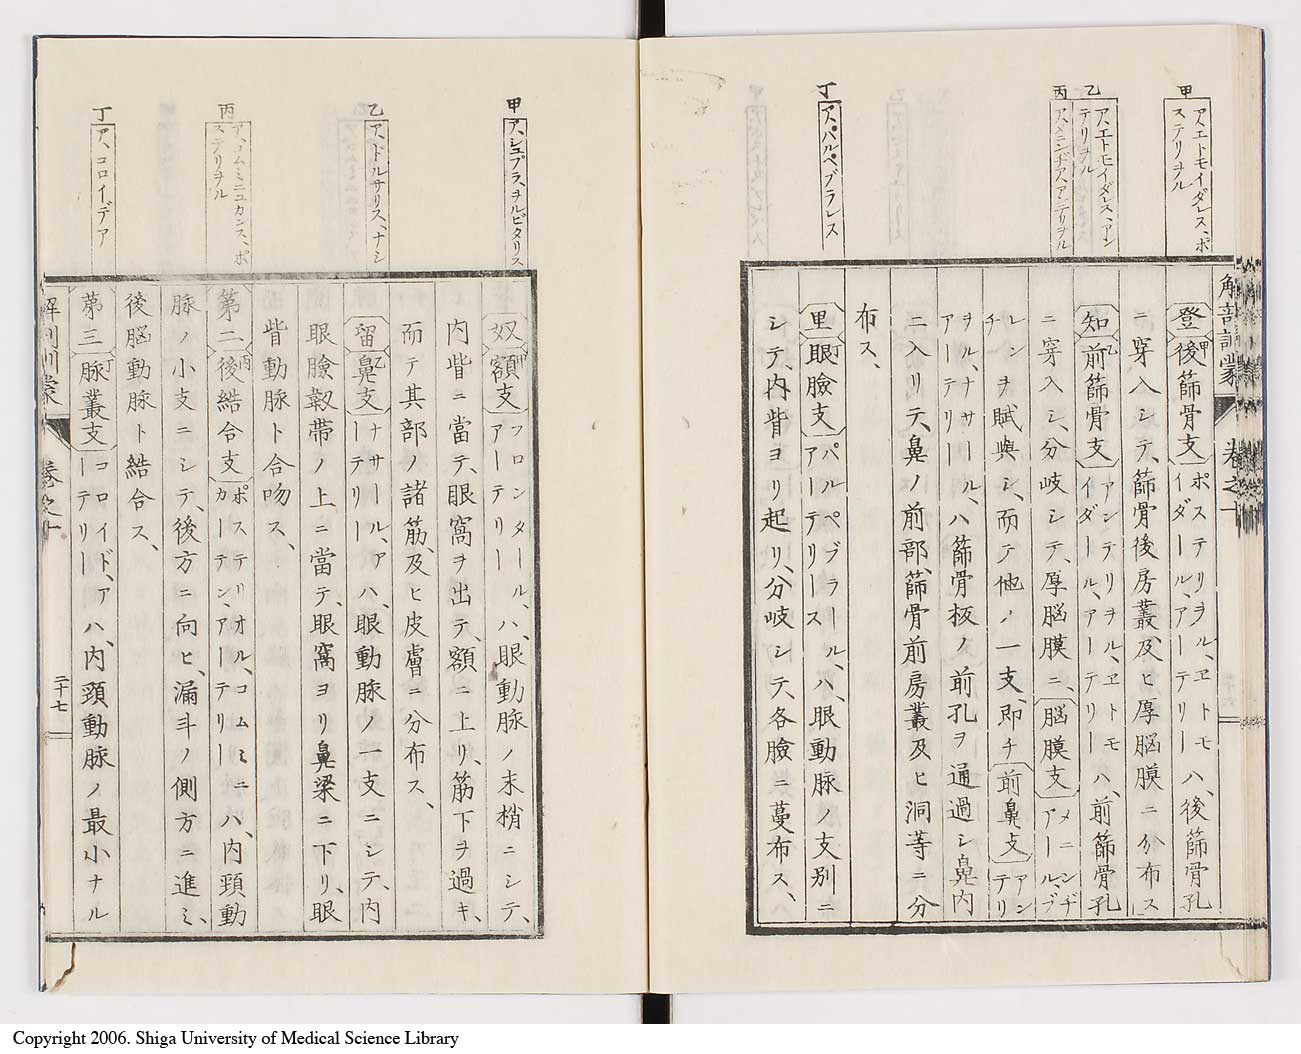 甲
ア、エトモイダレス、ポ
ステリヲル
乙
ア、エトモイダレス、アン
テリヲル
丙
ア、メニンヂア、アンテリヲル
丁
ア、パルペブラレス
解剖訓蒙 卷之十
登 後篩骨支 甲 ポステリヲル、ヱトモイダール、アーテリー ハ、後篩骨孔
ニ穿入シテ、篩骨後房叢、及ヒ厚脳膜ニ分布ス
知 前篩骨支 乙 アンテリヲル、ヱトモイダール、アーテリー ハ、前篩骨孔
ニ穿入シ、分岐シテ、厚脳膜ニ、脳膜支 丙 メニンヂアール、ブ
レンチ ヲ賦與シ、而テ他ノ一支、即チ 前鼻支 アンテリ
ヲル、ナサール、アーテリー ハ篩骨板ノ前孔ヲ通過シ鼻内
ニ入リテ、鼻ノ前部、篩骨前房叢及ヒ洞等ニ分
布ス、
里 眼瞼支 丁 パルペブラール、アーテリース ハ、眼動脉ノ支別ニ
シテ、内眥ヨリ起リ、分岐シテ、各瞼ニ蔓布ス、
甲
ア、シュプラ、ヲルビタリス
乙
ア、ドルサリス、ナシ
丙
ア、コムミニュカンス、ポ
ステリヲル
丁
ア、コロイデア
奴 額支 甲 フロンタール、アーテリー ハ、眼動脉ノ末梢ニシテ、
内眥ニ當テ、眼窩ヲ出テ、額ニ上リ、筋下ヲ過キ、
而テ其部ノ諸筋、及ヒ皮膚ニ分布ス、
留 鼻支 乙 ナサール、アーテリー ハ、眼動脉ノ一支ニシテ、内
眼瞼靱帯ノ上ニ當テ、眼窩ヨリ鼻梁ニ下リ、眼
眥動脉ト合吻ス、
第二 後結合支 丙 ポステリオル、コムミニカーテン、アーテリー ハ、内頸動
脉ノ小支ニシテ、後方ニ向ヒ、漏斗ノ側方ニ進ミ、
後脳動脉ト結合ス、
第三 脉叢支 丁 コロイド、アーテリー ハ、内頸動脉ノ最小ナル
解剖訓蒙 卷之十 二十七
Copyright 2006. Shiga University of Medical Science Library